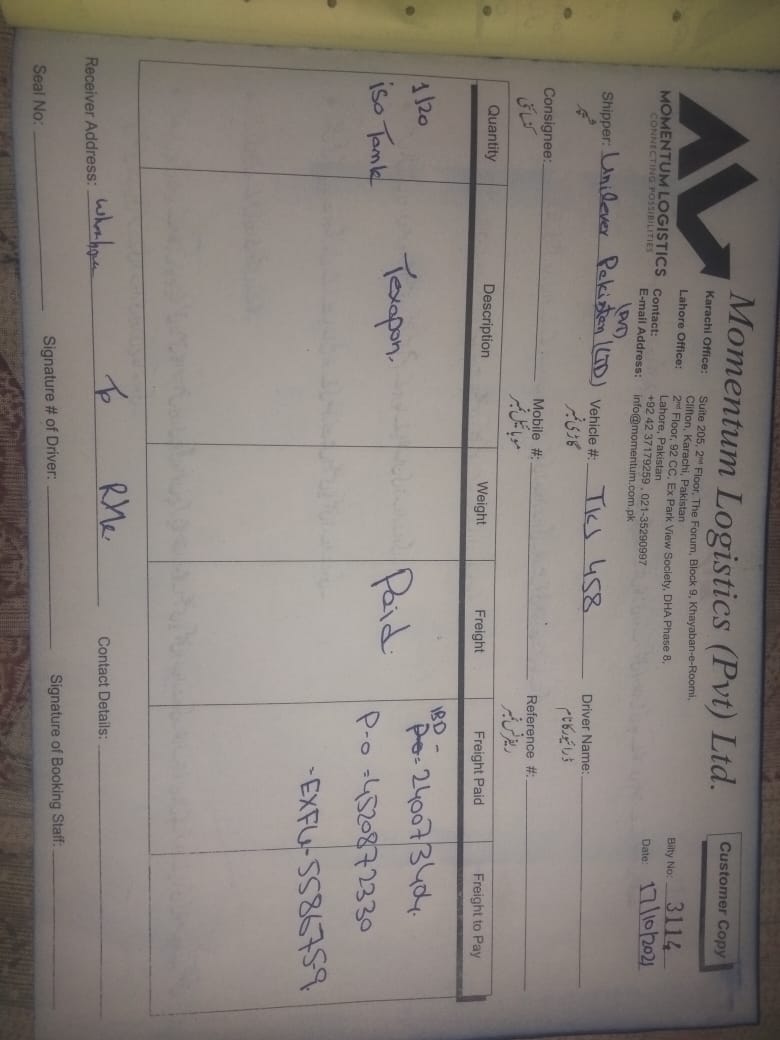 Momentum Logistics (Pvt) Ltd.
Customer Copy
MOMENTUM LOGISTICS
CONNECTING POSSIBILITIES
Karachi Office: Suite 205, 2nd Floor, The Forum, Block 9, Khayaban-e-Roomi,
Clifton, Karachi, Pakistan
Lahore Office: 2nd Floor, 92 CC, Ex Park View Society, DHA Phase 8,
Lahore, Pakistan
Contact: +92 42 37179259 , 021-35290997
E-mail Address: info@momentum.com.pk
Bilty No: 3114
Date: 17/10/2021
Shipper: Unilever Pakistan (PVT) (LTD) Vehicle #: TKJ 458 Driver Name:
گاڑی نمبر ڈرائیور کا نام
Consignee: Mobile #: Reference #:
موبائل نمبر ریفرنس نمبر
Quantity Description Weight Freight Freight Paid Freight to Pay
1/20 IBD - 240073404.
iso Tank Texapon. Paid. P-O = 4520872330
- EXFU-558675-9.
Receiver Address: To RYK. Contact Details:
Seal No: Signature # of Driver: Signature of Booking Staff: